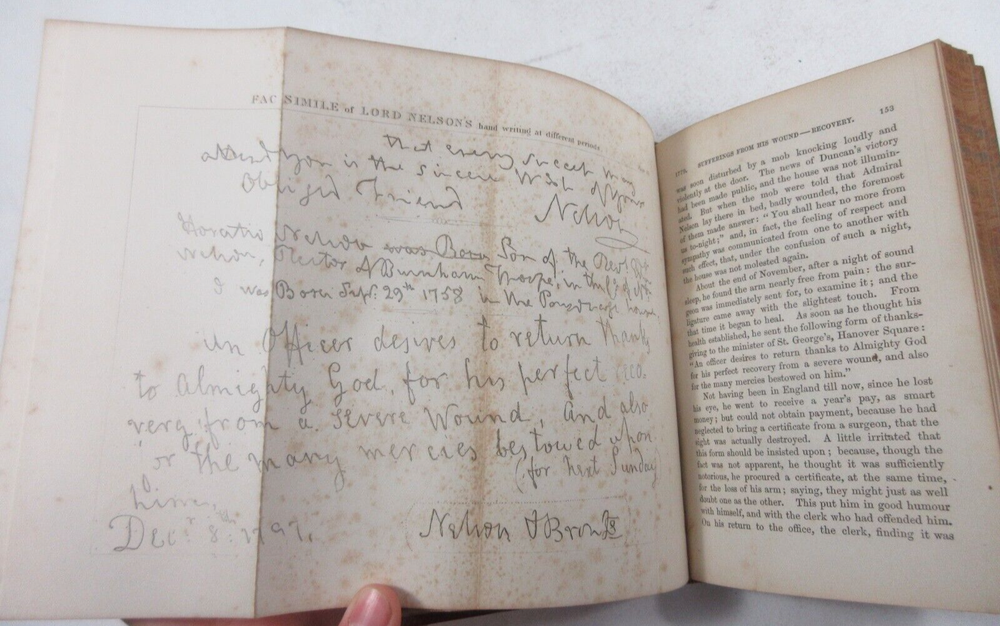 FAC SIMILE of LORD NELSON'S hand writing at different periods.
that every success may
attend you is the sincere Wish of your
Obliged Friend
Nelson
Horatio Nelson was Born Son of the Revd.
Nelson, Rector of Burnham Thorpe, in the
I was Born Sept. 29th 1758 in the Parsonage house
An Officer desires to return Thanks
to Almighty God for his perfect reco-
very from a severe Wound, and also
for the many mercies bestowed upon
(for next Sunday)
him,
Decr. 8th 1797.
Nelson & Bronte
1798. SUFFERINGS FROM HIS WOUND—RECOVERY. 153
was soon disturbed by a mob knocking loudly and
violently at the door. The news of Duncan's victory
had been made public, and the house was not illumin-
ated. But when the mob were told that Admiral
Nelson lay there in bed, badly wounded, the foremost
of them made answer: "You shall hear no more from
us to-night;" and, in fact, the feeling of respect and
sympathy was communicated from one to another with
such effect, that, under the confusion of such a night,
the house was not molested again.
About the end of November, after a night of sound
sleep, he found the arm nearly free from pain: the sur-
geon was immediately sent for, to examine it; and the
ligature came away with the slightest touch. From
that time it began to heal. As soon as he thought his
health established, he sent the following form of thanks-
giving to the minister of St. George's, Hanover Square:
"An officer desires to return thanks to Almighty God
for his perfect recovery from a severe wound, and also
for the many mercies bestowed on him."
Not having been in England till now, since he lost
his eye, he went to receive a year's pay, as smart
money; but could not obtain payment, because he had
neglected to bring a certificate from a surgeon, that the
sight was actually destroyed. A little irritated that
this form should be insisted upon; because, though the
fact was not apparent, he thought it was sufficiently
notorious, he procured a certificate, at the same time,
for the loss of his arm; saying, they might just as well
doubt one as the other. This put him in good humour
with himself, and with the clerk who had offended him.
On his return to the office, the clerk, finding it was